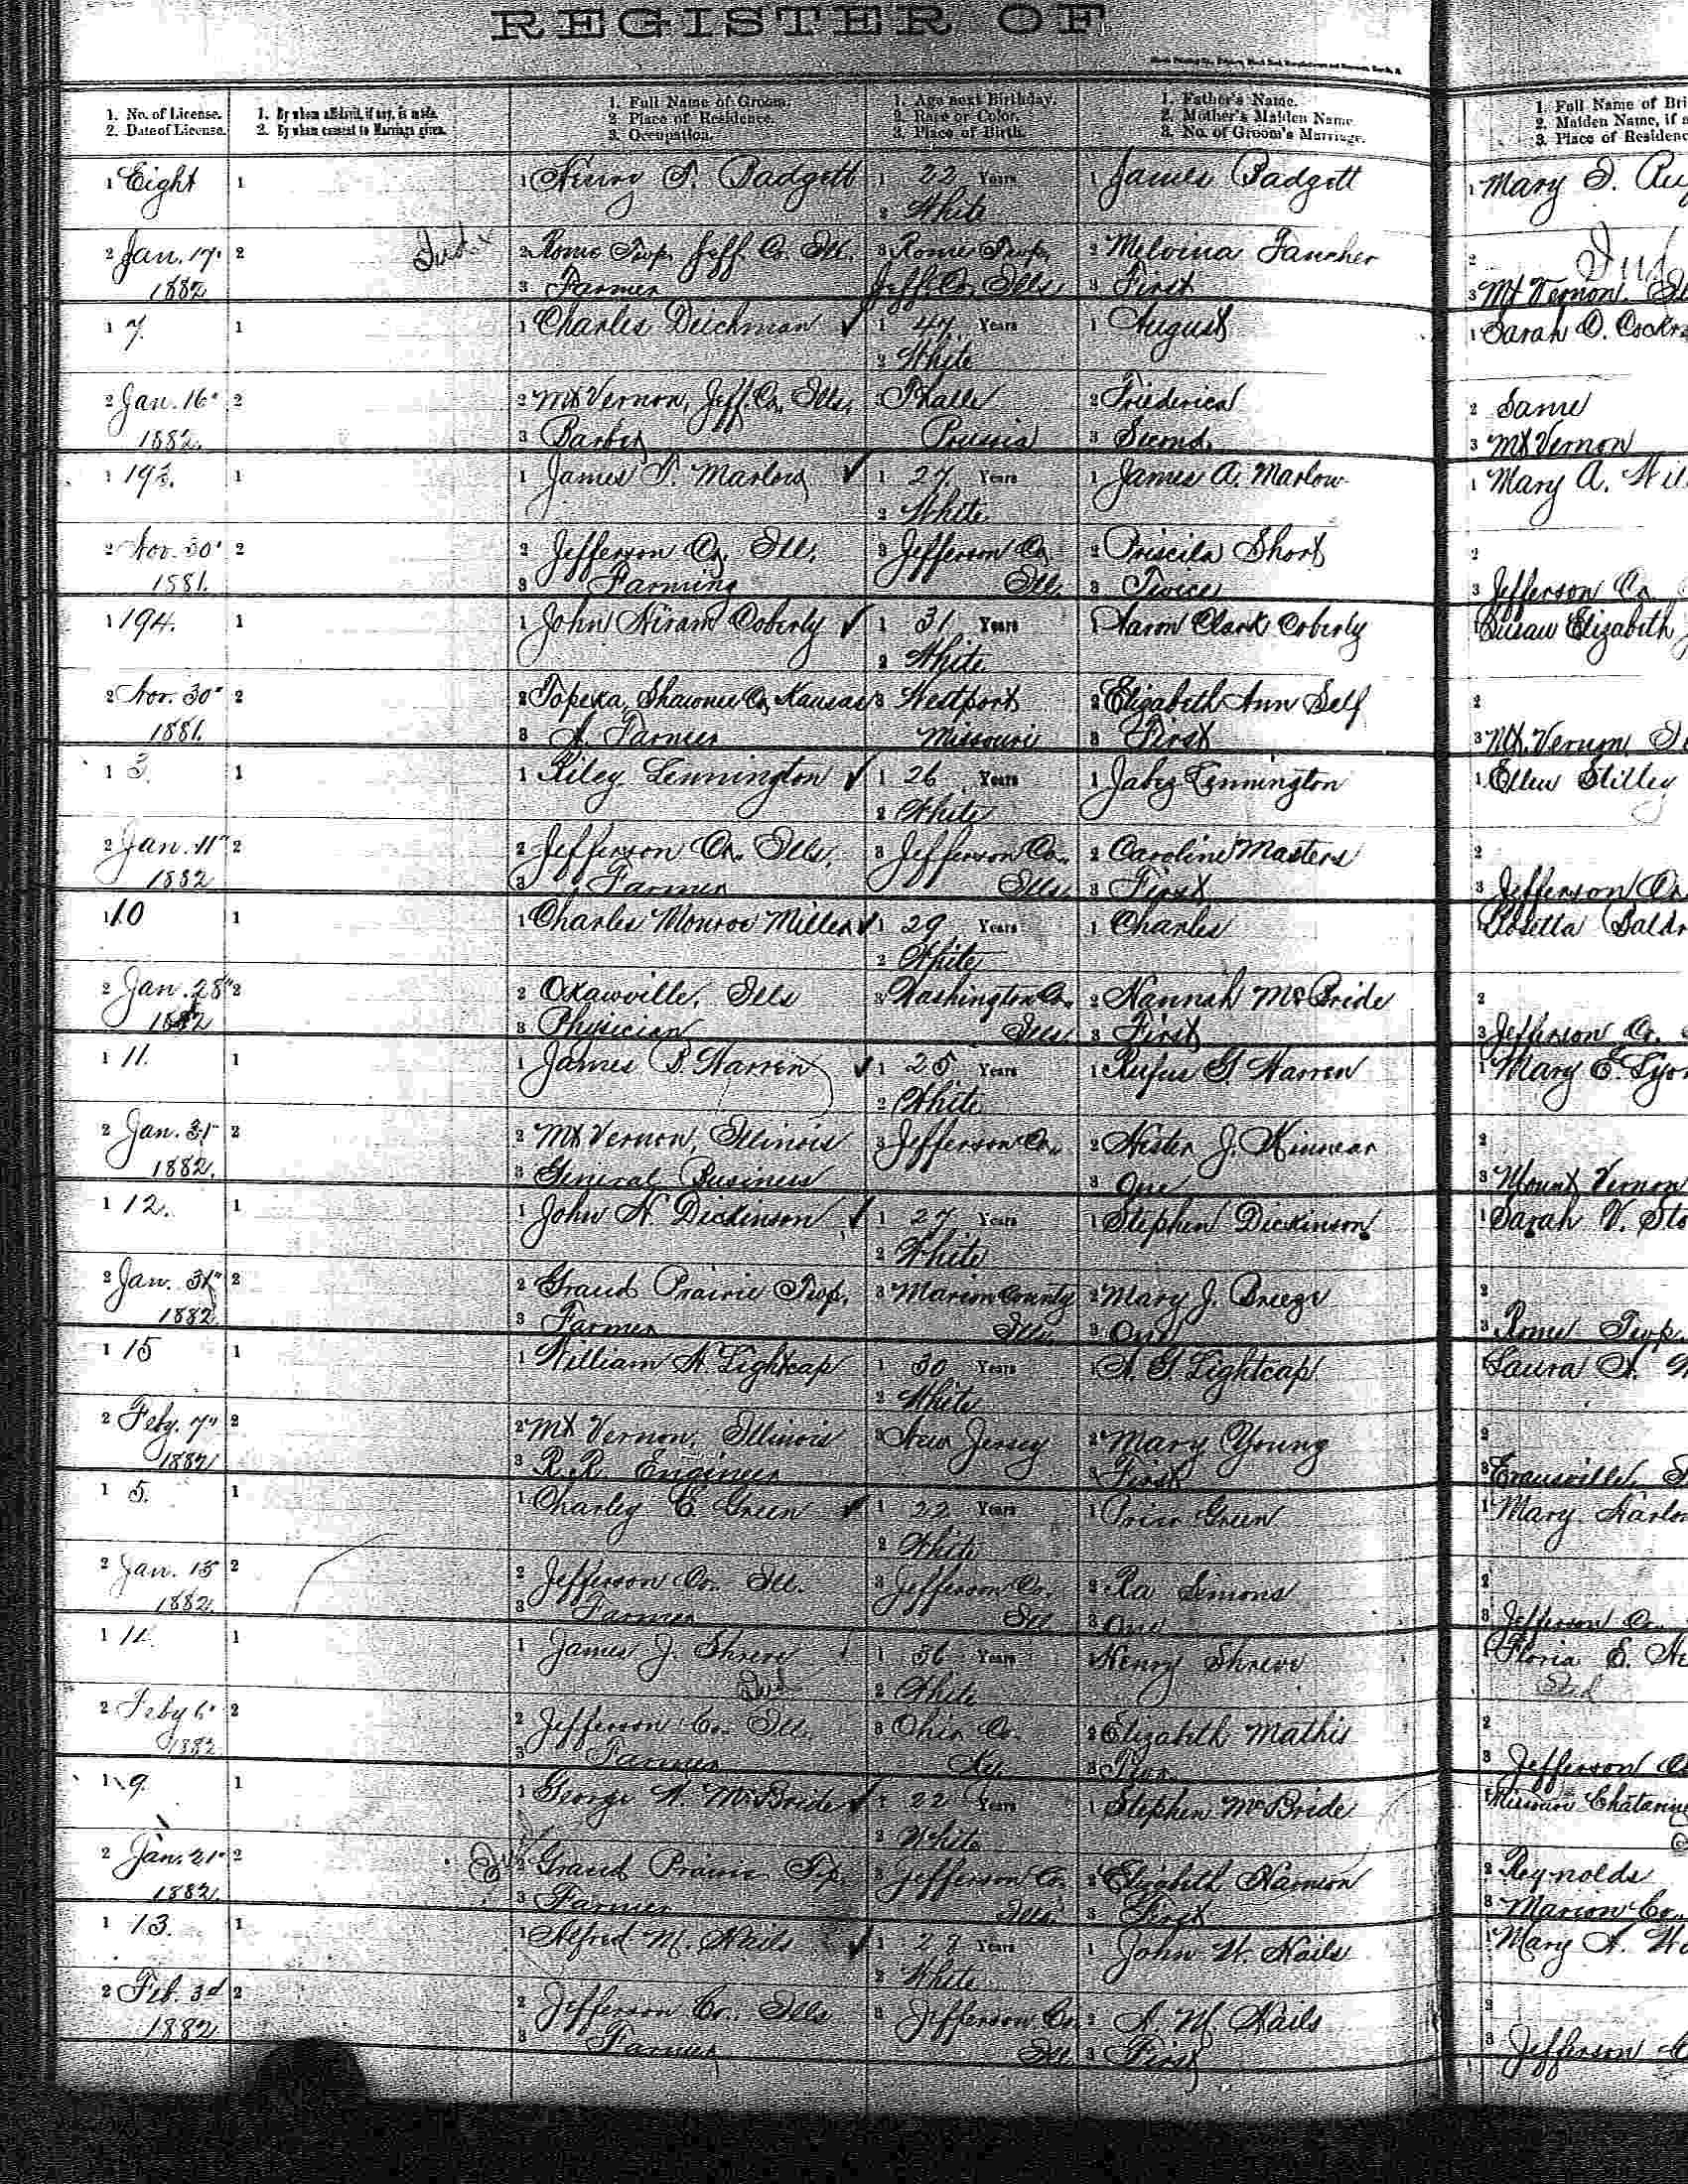 REGISTER OF
1. No. of License.
2. Date of License.
1. By whom affidavit, if any, is made.
2. By whom consent to Marriage given.
1. Full Name of Groom.
2. Place of Residence.
3. Occupation.
1. Age next Birthday.
2. Race or Color.
3. Place of Birth.
1. Father's Name.
2. Mother's Maiden Name
3. No. of Groom's Marriage.
1. Full Name of Bri
2. Maiden Name, if a
3. Place of Residenc
1 Eight 1 1 Henry T. Padgett 1 22 Years 1 James Padgett 1 Mary I.
2 White
2 Jan. 17" 2 2 Rome Twp. Jeff. Co. Ill. 3 Rome Twp. 2 Melvina Fancher 2
1882 3 Farmer Jeff. Co. Ills. 3 First 3 Mt Vernon
1 7. 1 1 Charles Deichman 1 47 Years 1 August 1 Sarah O. Cockr
2 White
2 Jan. 16" 2 2 Mt Vernon, Jeff. Co. Ills. 3 Thalle 2 Friederica 2 Same
1882. 3 Barber Prussia 3 Second. 3 Mt Vernon
1 193. 1 1 James T. Marlow 1 27 Years 1 James A. Marlow 1 Mary A. Wil
2 White
2 Nov. 30" 2 2 Jefferson Co, Ill. 3 Jefferson Co 2 Priscila Short 2
1881. 3 Farming Ill. 3 Twice 3 Jefferson Co.
1 194. 1 1 John Hiram Coberly 1 31 Years 1 Aaron Clark Coberly 1 Susan Elizabeth
2 White
2 Nov. 30" 2 2 Topeka, Shawnee Co, Kansas 3 Westport 2 Elizabeth Ann Self 2
1881. 3 A. Farmer Missouri 3 First 3 Mt. Vernon,
1 3. 1 1 Riley Lennington 1 26 Years 1 Jabez Lennington 1 Ellen Stilley
2 White
2 Jan. 11" 2 2 Jefferson Co. Ills. 3 Jefferson Co. 2 Caroline Masters 2
1882 3 Farmer Ills. 3 First 3 Jefferson Co
1 10 1 1 Charles Monroe Miller 1 29 Years 1 Charles 1 Rosetta Baldr
2 White
2 Jan. 28" 2 2 Okawville, Ills 3 Washington Co. 2 Hannah McBride 2
1882 3 Physician Ills. 3 First 3 Jefferson Co.
1 11. 1 1 James B. Warren 1 25 Years 1 Rufus G. Warren 1 Mary E. Lyon
2 White
2 Jan. 31" 2 2 Mt Vernon, Illinois 3 Jefferson Co. 2 Hester J. Kinnear 2
1882. 3 General Business 3 One 3 Mount Vernon
1 12. 1 1 John H. Dickinson 1 27 Years 1 Stephen Dickinson 1 Sarah V. Sto
2 White
2 Jan. 31" 2 2 Grand Prairie Twp. 3 Marion County 2 Mary J. Breeze 2
1882 3 Farmer Ills. 3 One 3 Rome Twp.
1 15 1 1 William H. Lightcap 1 30 Years 1 A. G. Lightcap 1 Laura A.
2 White
2 Feby. 7" 2 2 Mt Vernon, Illinois 3 New Jersey 2 Mary Young 2
1882 3 R.R. Engineer 3 First 3 Evansville,
1 5. 1 1 Charley C. Green 1 22 Years 1 Green 1 Mary Harlo
2 White
2 Jan. 15 2 2 Jefferson Co. Ill. 3 Jefferson Co. 2 Simons 2
1882. 3 Farmer Ill 3 One 3 Jefferson Co.
1 1 1 James J. Shreve 1 36 Years 1 Henry Shreve 1 Floria E.
2 White
2 Feby 6" 2 2 Jefferson Co. Ill. 3 Ohio Co. 2 Elizabeth Mathis 2
1882 3 Farmer Ky. 3 3 Jefferson
1 9 1 1 George A. McBride 1 22 Years 1 Stephen McBride 1 Chatarine
2 White
2 Jan. 21" 2 2 Grand Prairie Tp. 3 Jefferson Co. 2 Elizabeth Harmon 2 Reynolds
1882 3 Farmer Ills. 3 First 3 Marion Co.
1 13. 1 1 Alfred M. Hails 1 27 Years 1 John W. Hails 1 Mary A.
2 White
2 Feb. 3d 2 2 Jefferson Co. Ills 3 Jefferson Co. 2 A. M. Hails 2
1882 3 Farmer Ill 3 First 3 Jefferson